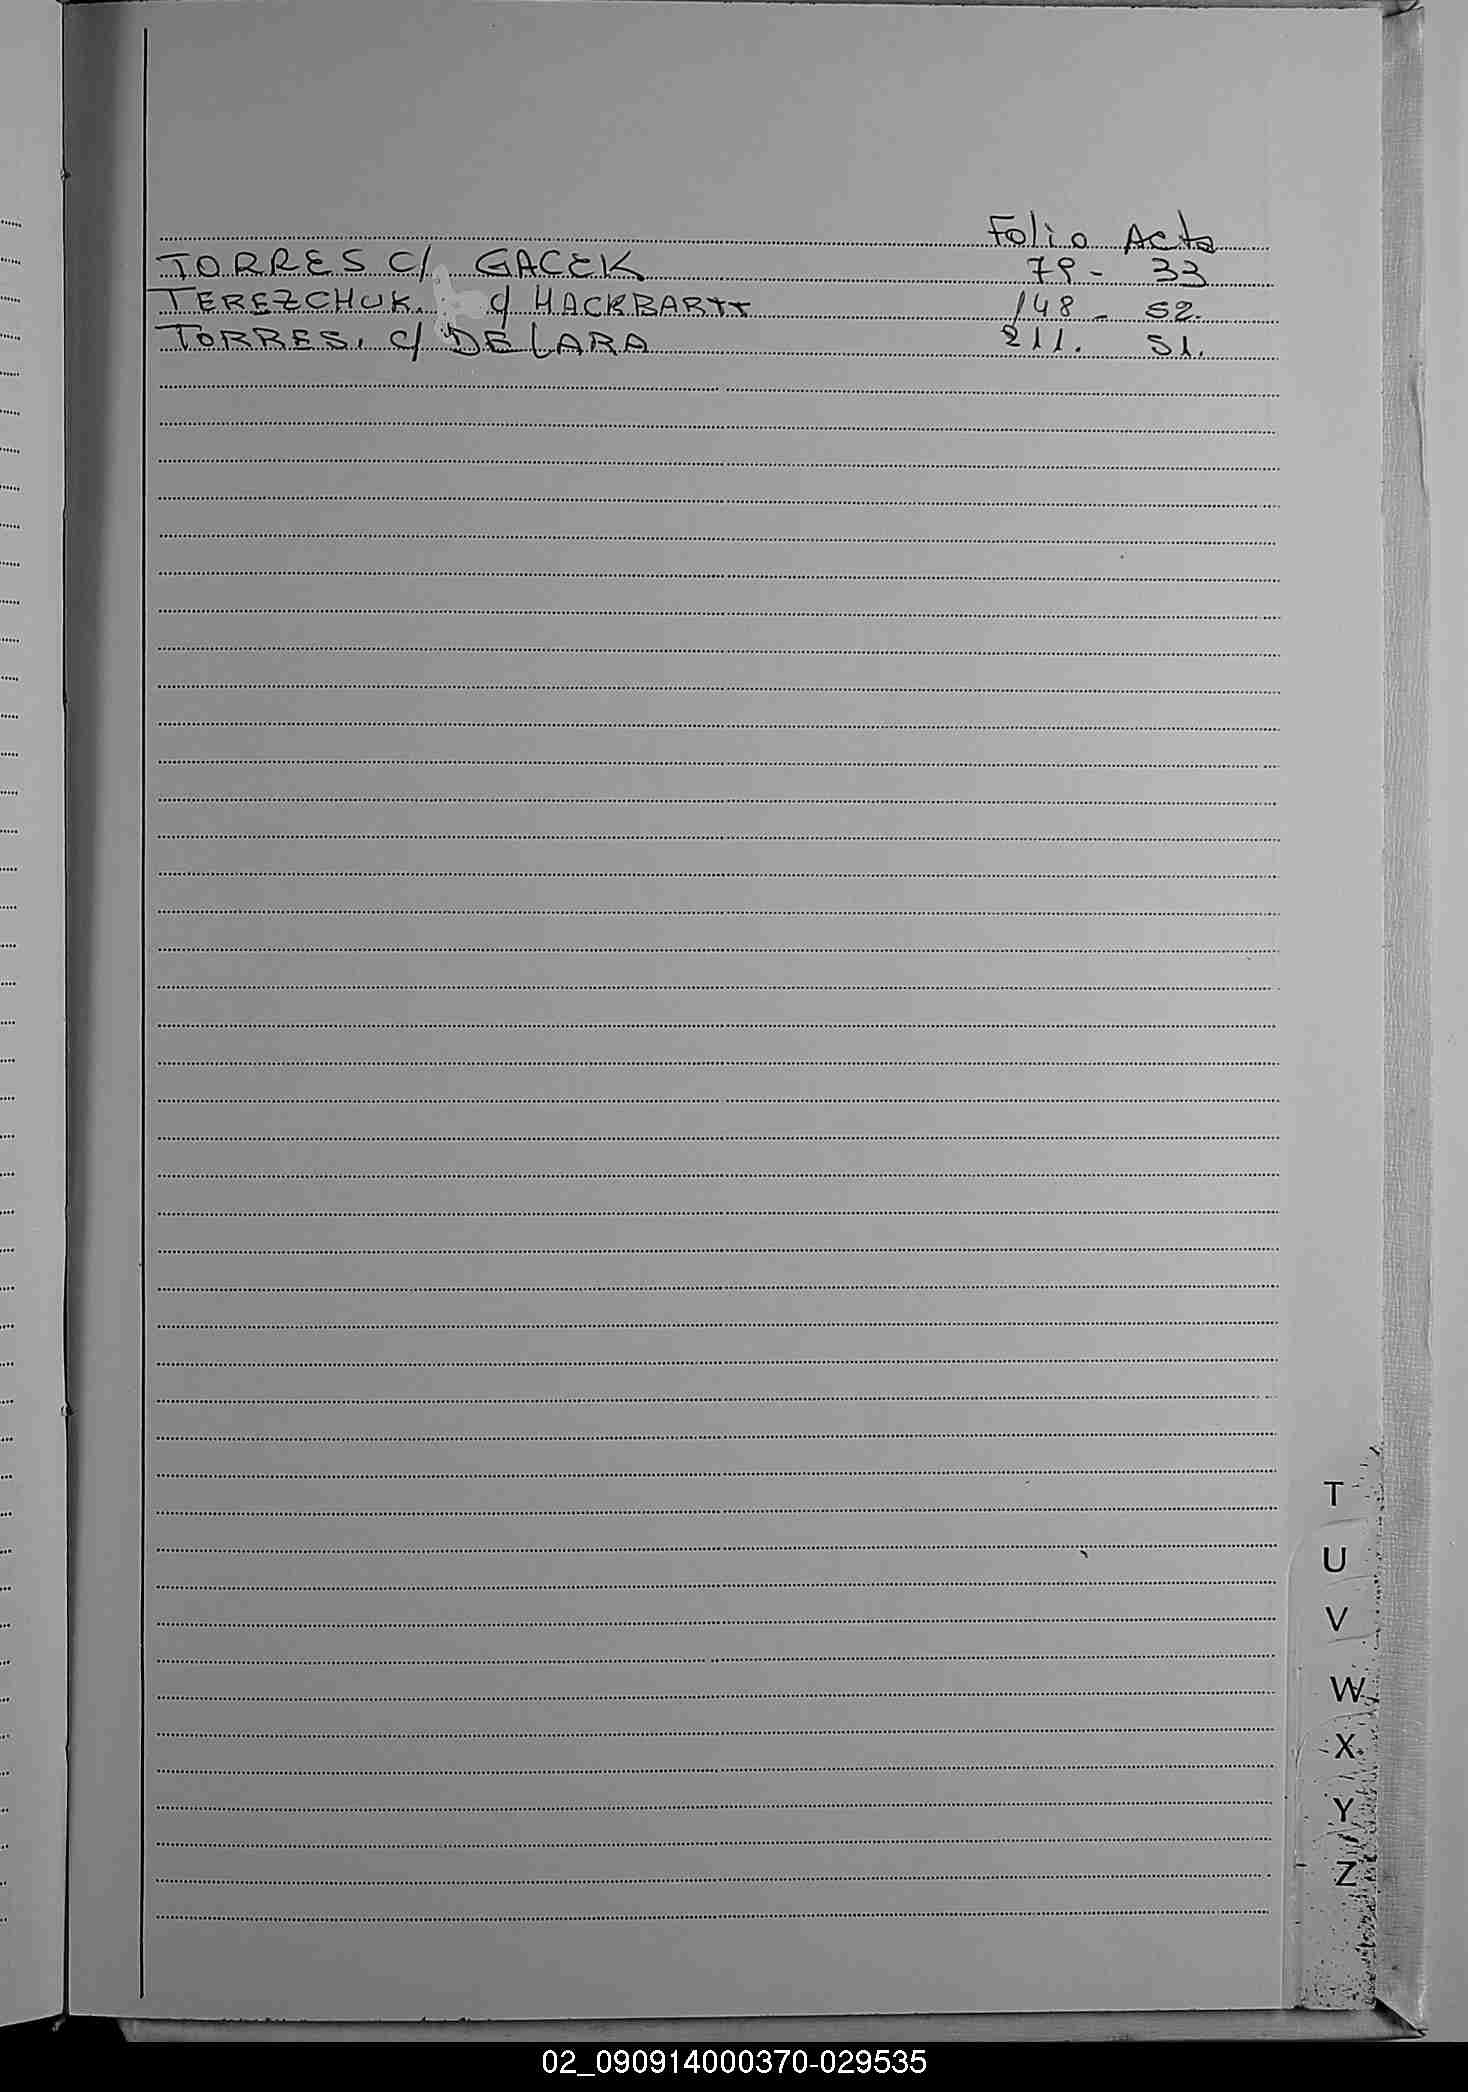 Folio Acta
TORRES c/ GACEK 79 - 33
TEREZCHUK. c/ HACKBARTT 148 - 52.
TORRES. c/ DE LARA 211. 51.
T
U
V
W
X
Y
Z
02_090914000370-029535